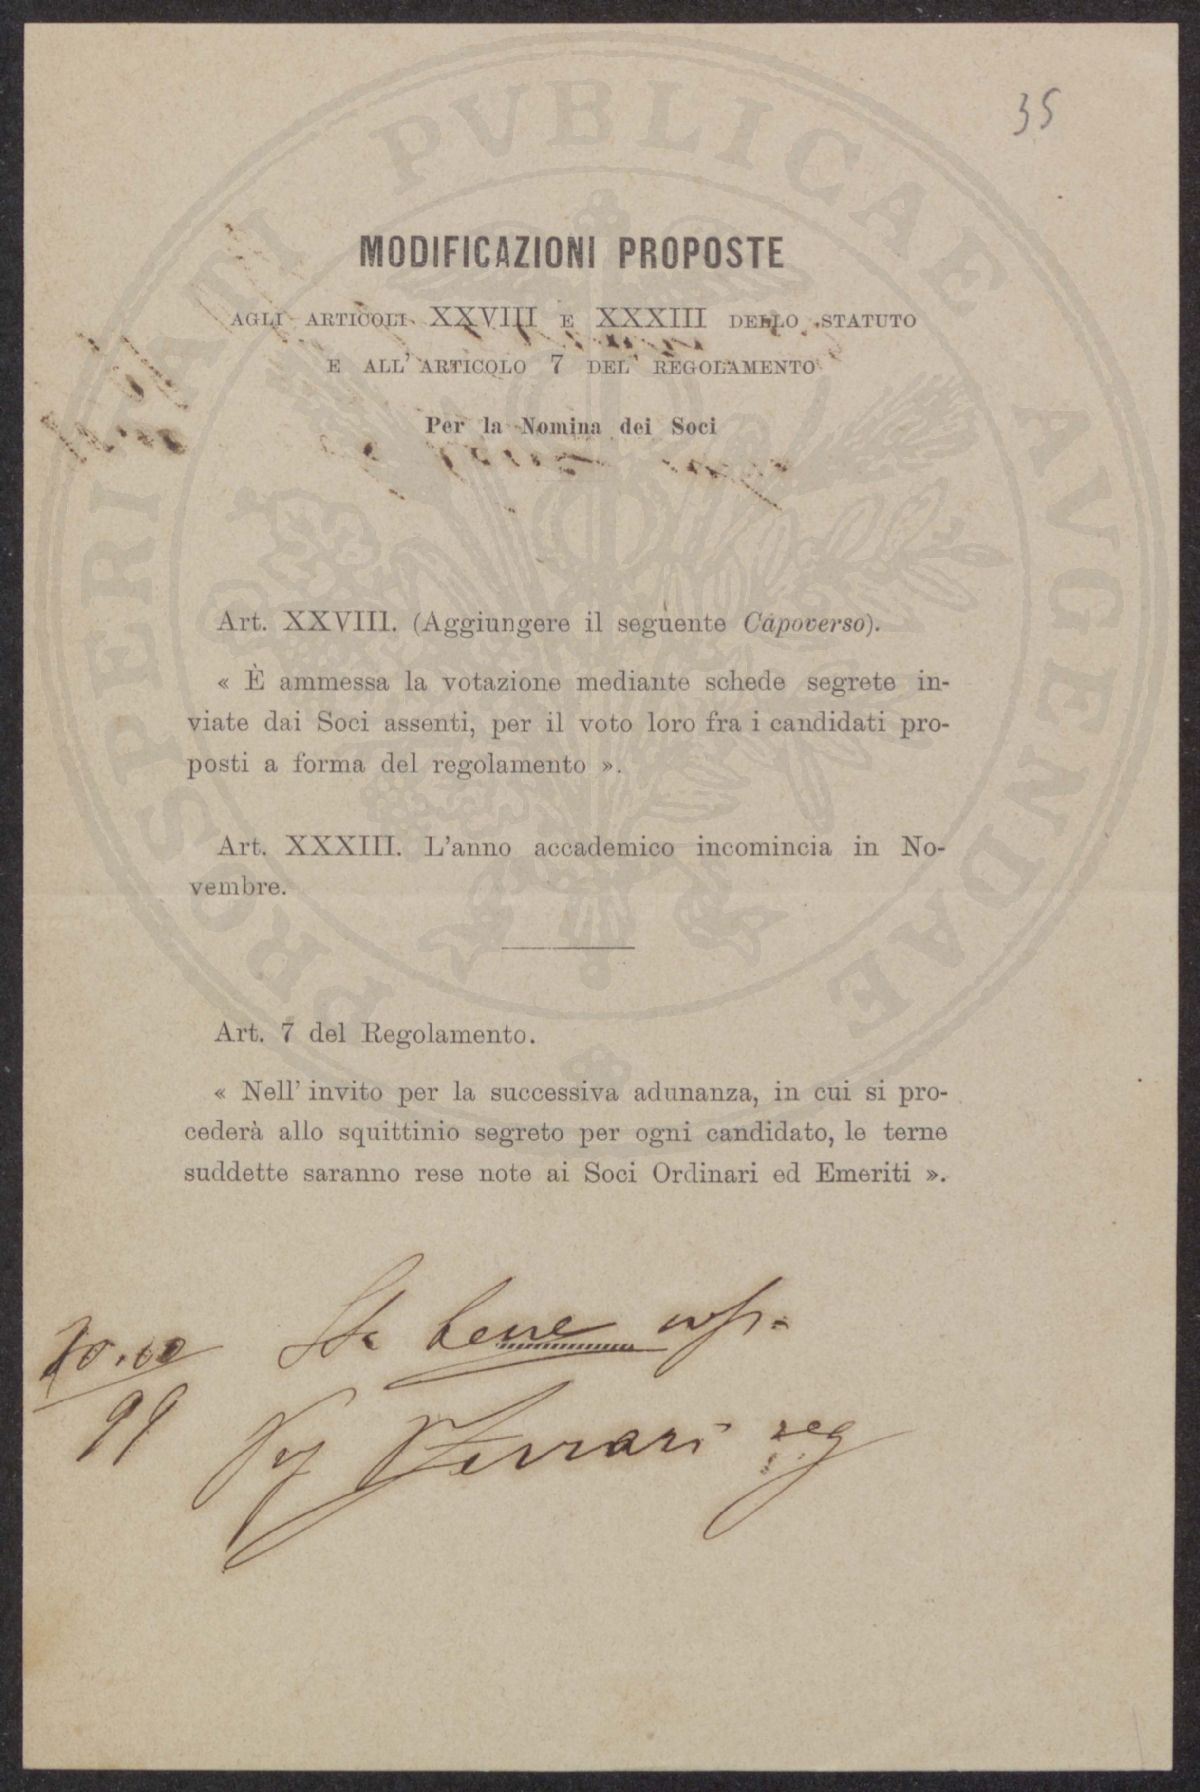 35
MODIFICAZIONI PROPOSTE
AGLI ARTICOLI XXVIII E XXXIII DELLO STATUTO
E ALL' ARTICOLO 7 DEL REGOLAMENTO
Per la Nomina dei Soci
Art. XXVIII. (Aggiungere il seguente Capoverso).
« È ammessa la votazione mediante schede segrete in-
viate dai Soci assenti, per il voto loro fra i candidati pro-
posti a forma del regolamento ».
Art. XXXIII. L'anno accademico incomincia in No-
vembre.
Art. 7 del Regolamento.
« Nell' invito per la successiva adunanza, in cui si pro-
cederà allo squittinio segreto per ogni candidato, le terne
suddette saranno rese note ai Soci Ordinari ed Emeriti ».
Sta bene
99
Ferrari seg
PROSPERITATI PVBLICAE AVGENDAE